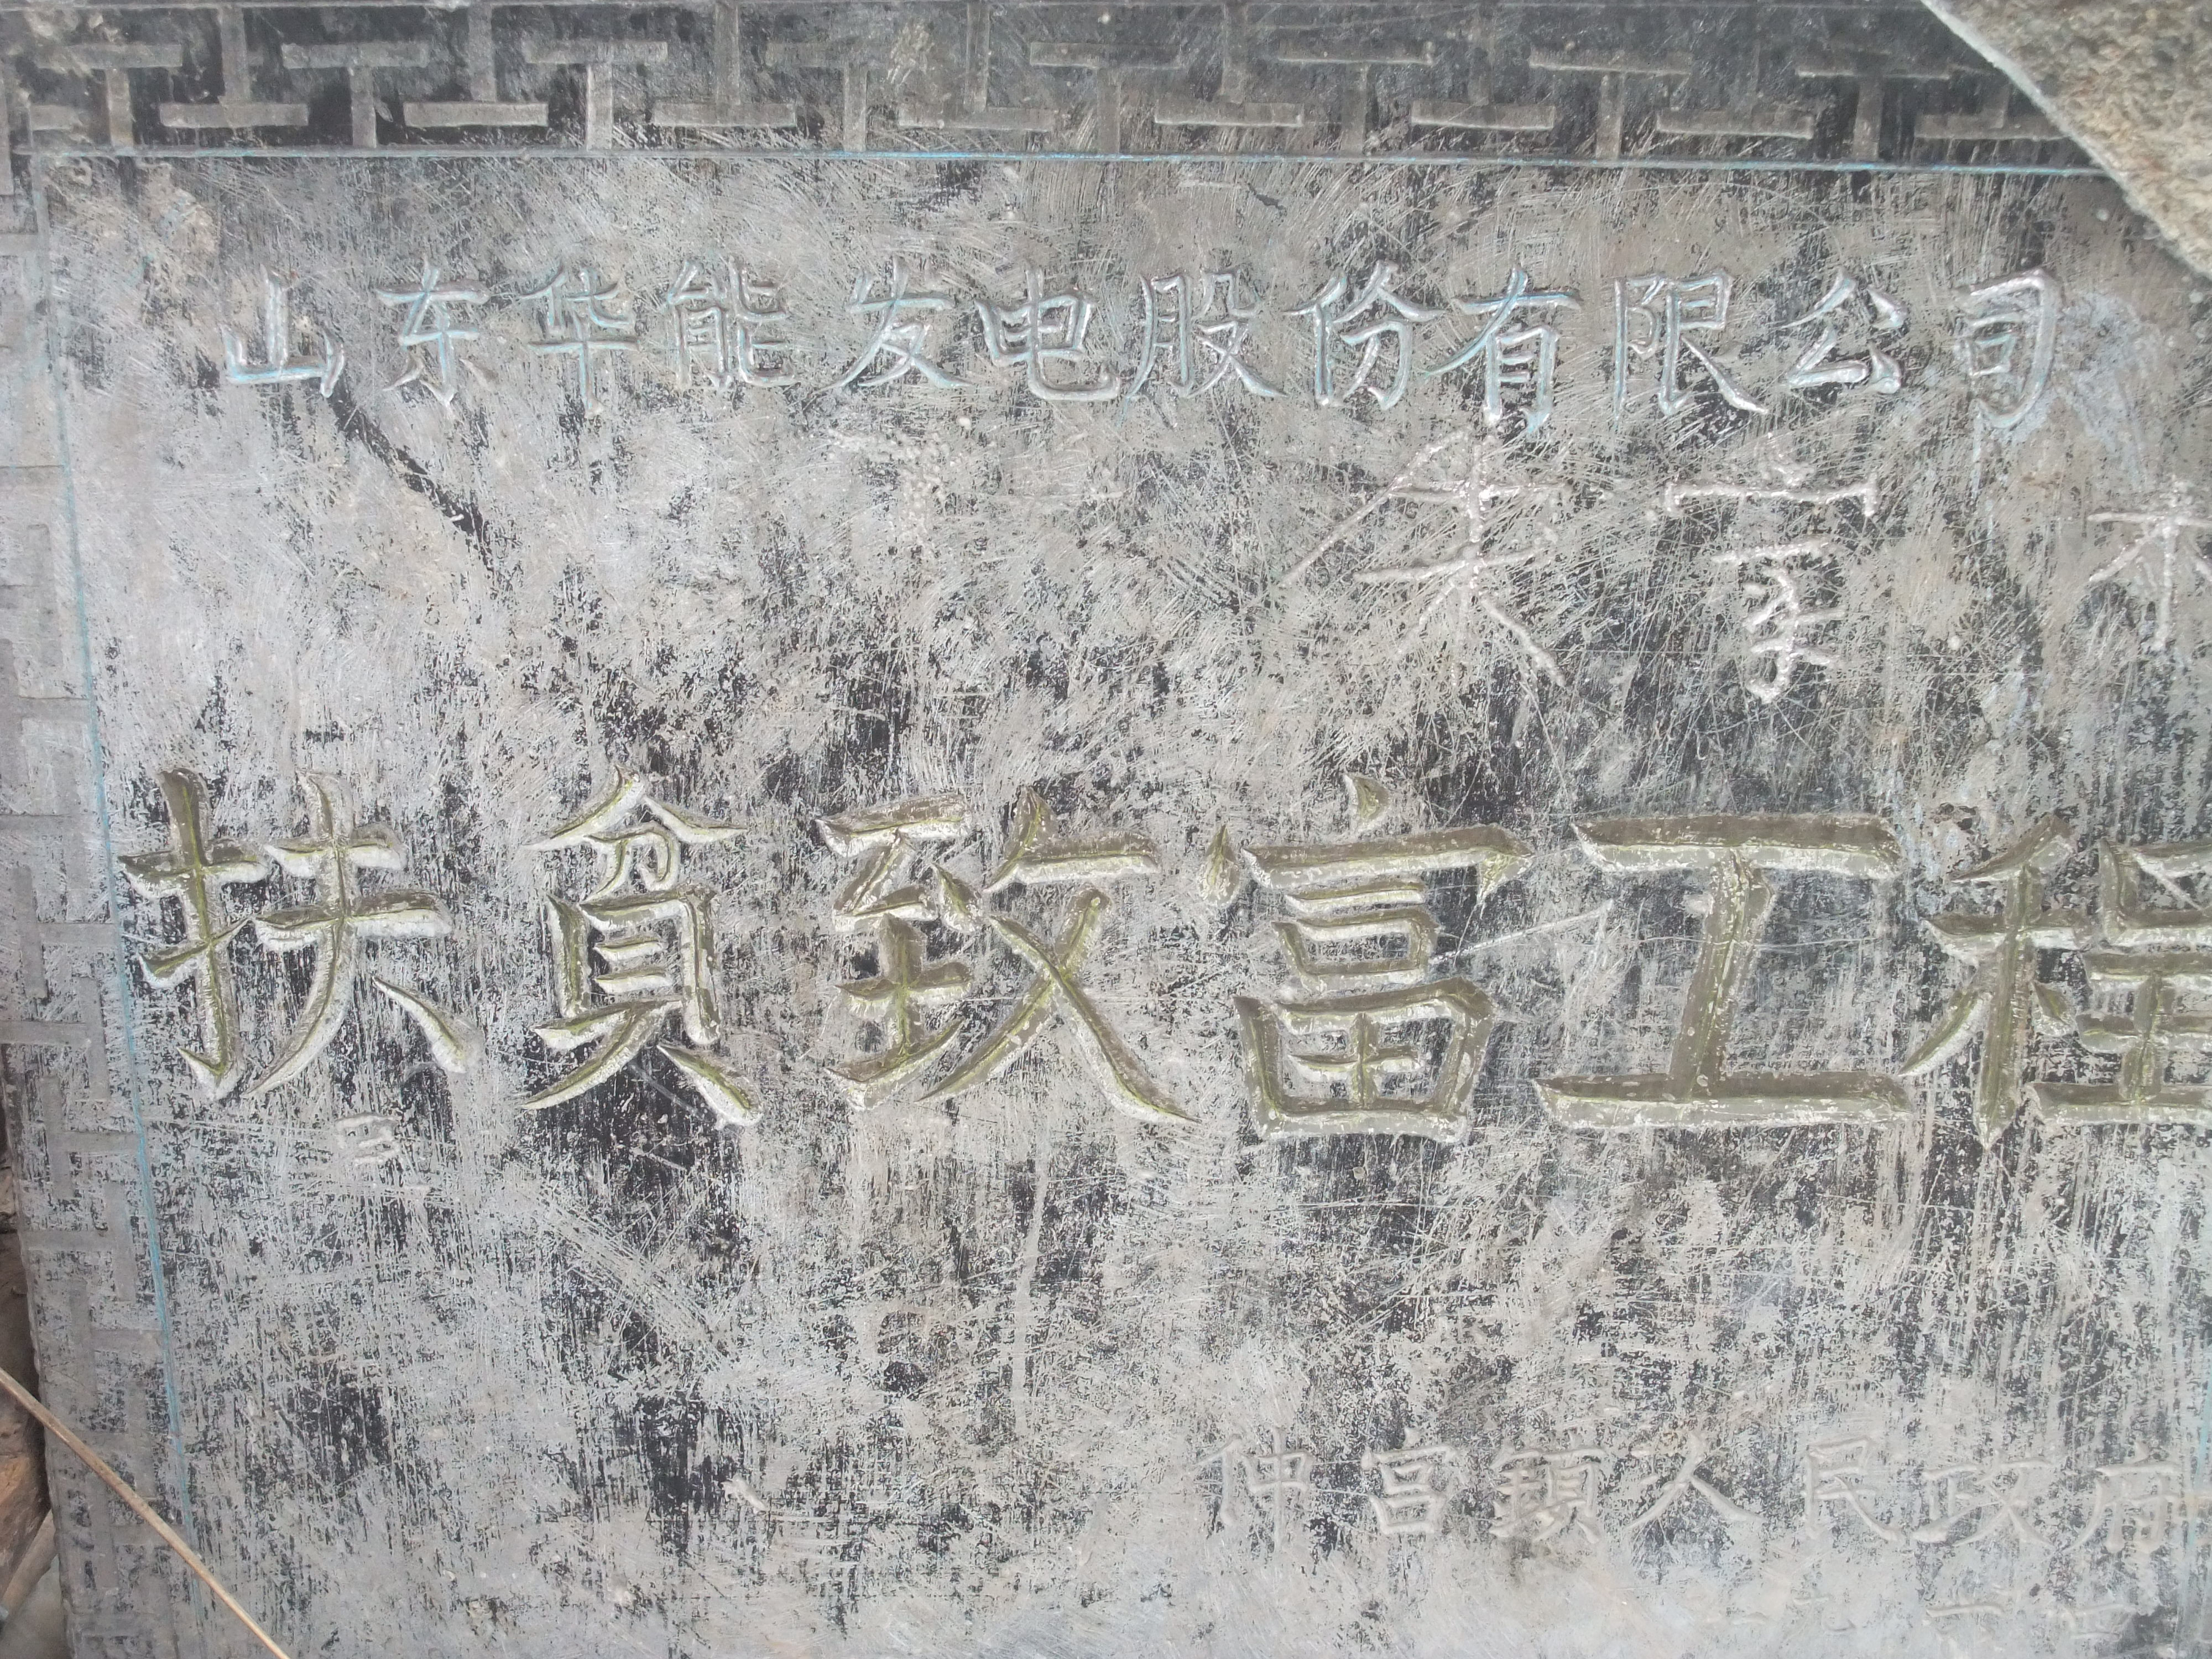 山东华能发电股份有限公司
扶贫致富工程
仲宫鎮人民政府